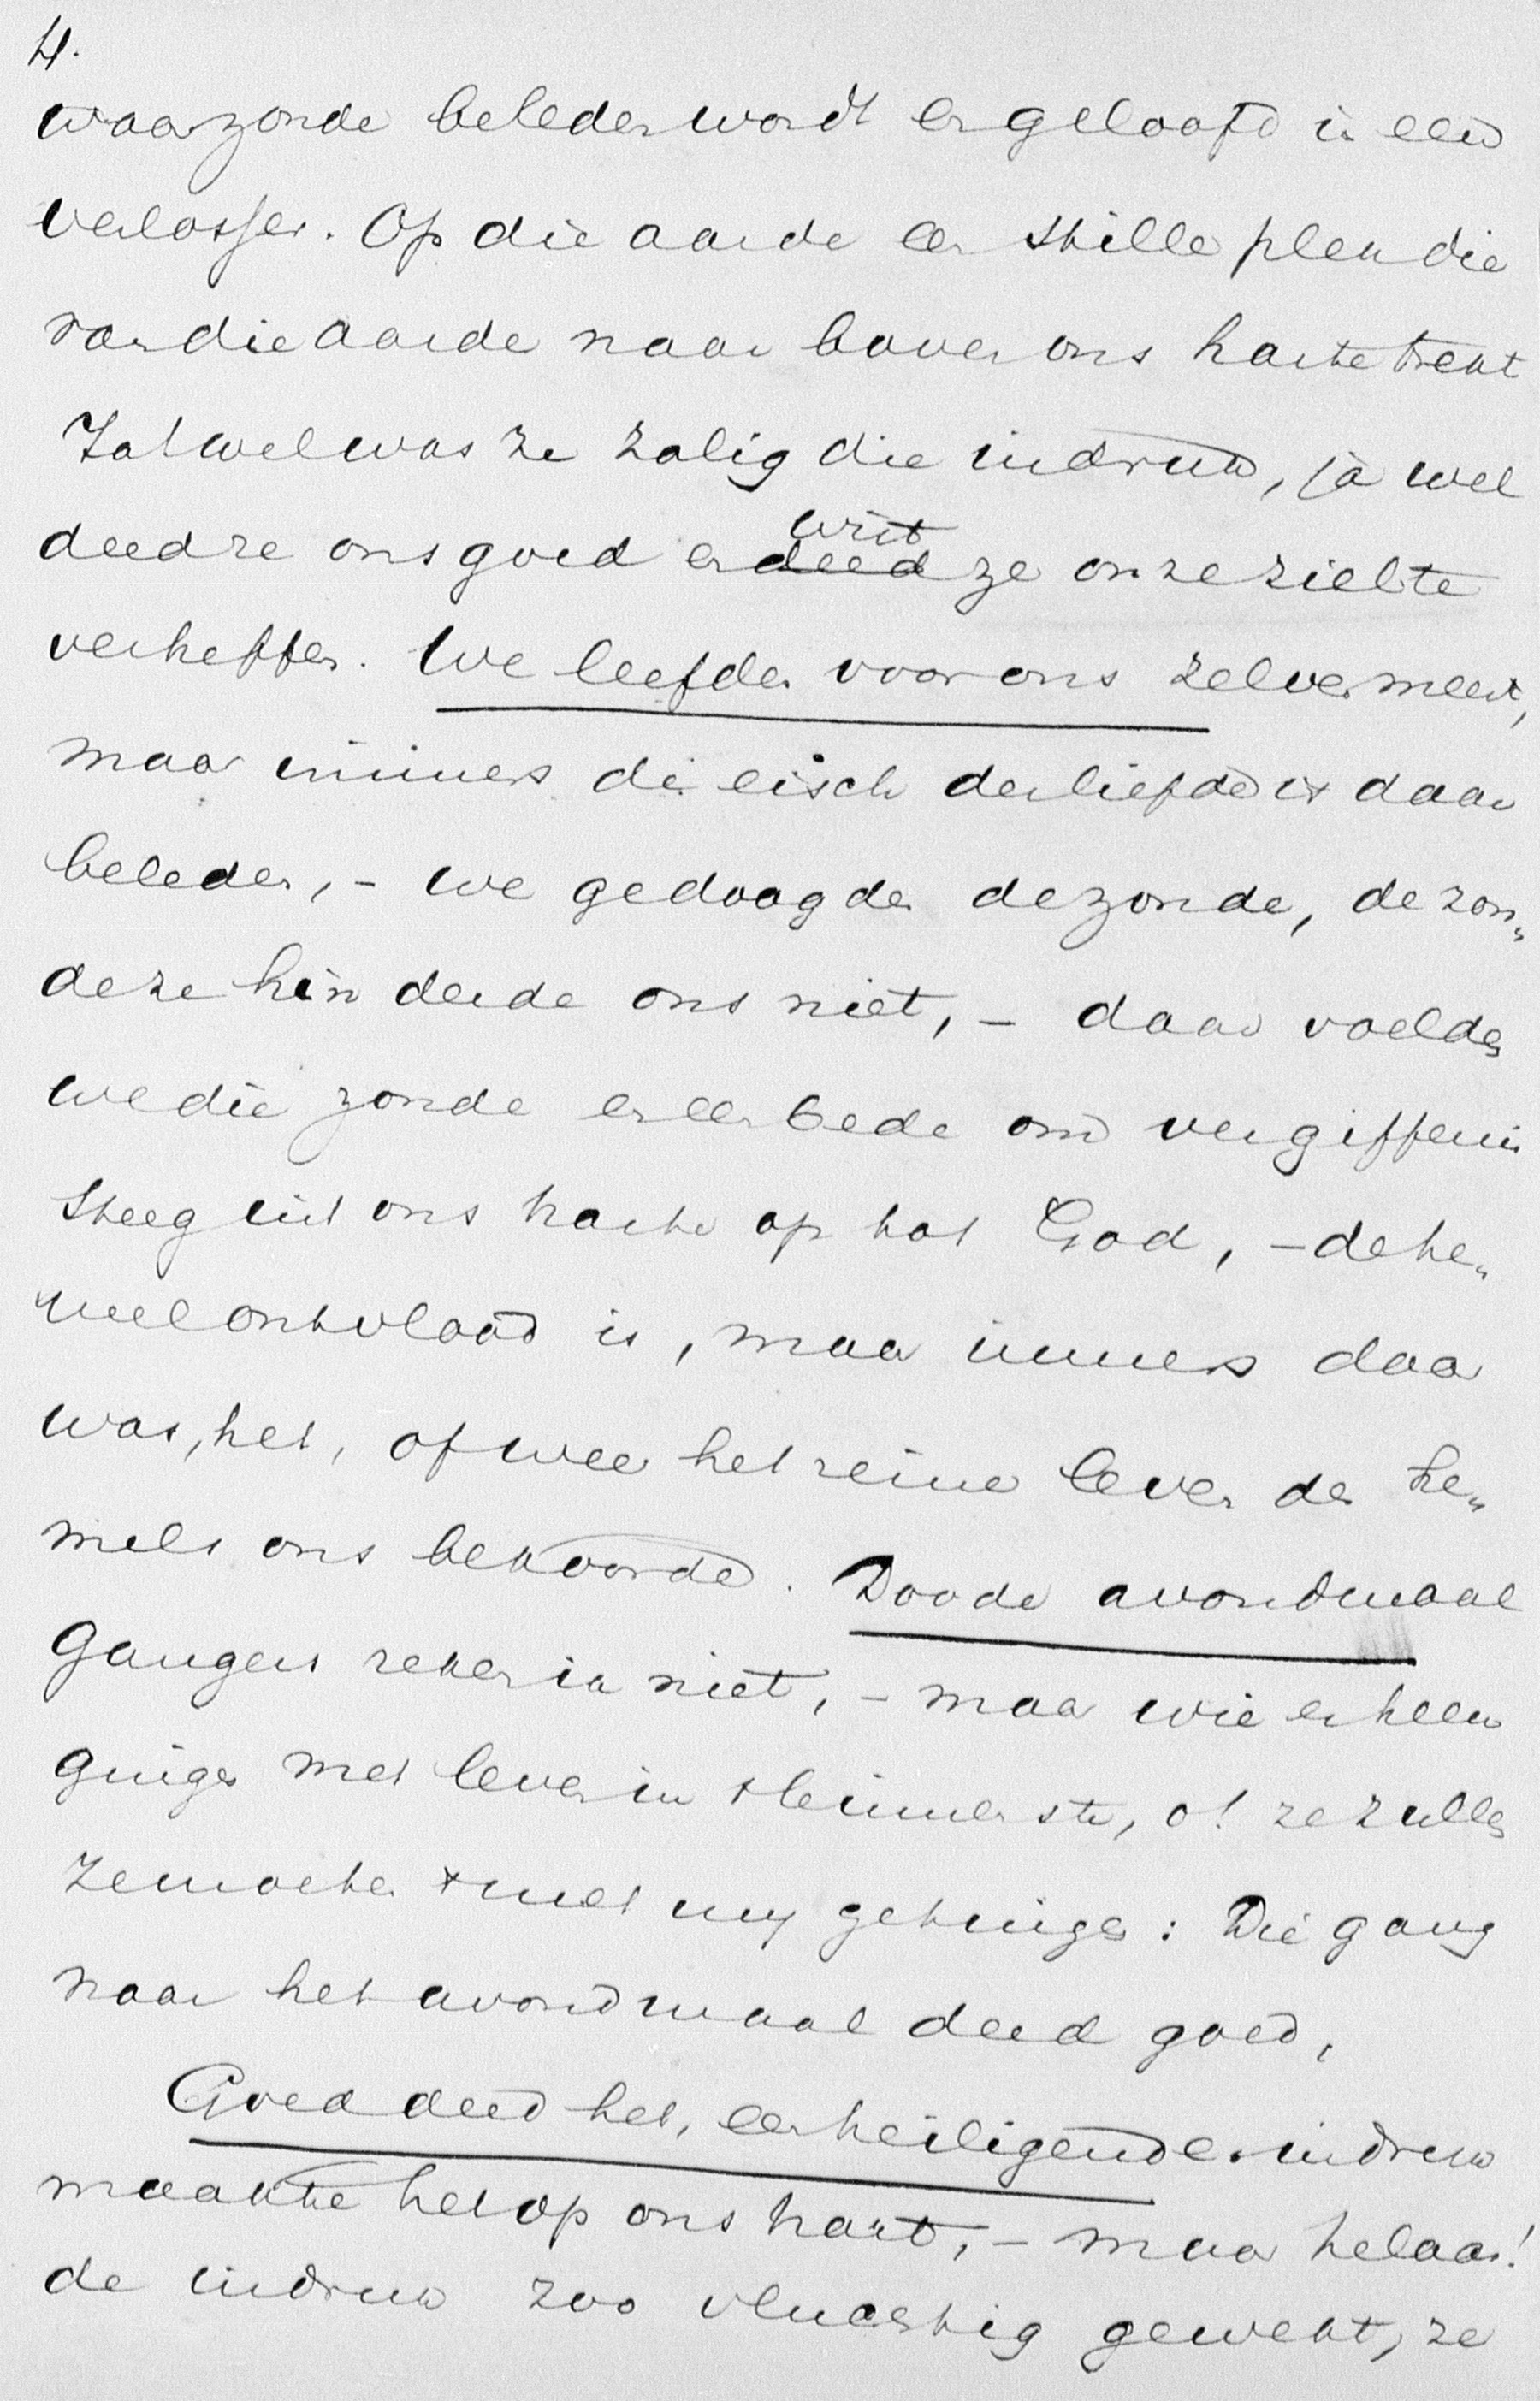 4.
waar zonde beleden wordt en geloofd in een
verlosser. Op die aarde een stille plek die
van die aarde naar boven ons harte trekt
Zat wel was ze zalig die indruk, ja wel
deed ze ons goed en wist deed ze onze ziel te
verheffen. We leefden voor ons zelven meest,
maar immers de eisch der liefde is daar
beleden, - we gedoogden de zonde, de zon„
de ze hinderde ons niet, - daar voelden
we die zonde en een bede om vergiffenis
steeg uit ons harte op tot God, - de he„
mel ontvlood is, maar immers daar
was het, of weer het reine leven des he„
mels ons bekoorde. Doode avondmaal
gangers reken ik niet, - maar wie er heen
gingen met leven in 't binnenste, o! ze zullen
ze moeten 't met mij getuigen: Die gang
naar het avondmaal deed goed,
Goed deed het, een heiligende indruk
maakte het op ons hart, - maar helaas!
de indruk zoo vluchtig gewekt, ze